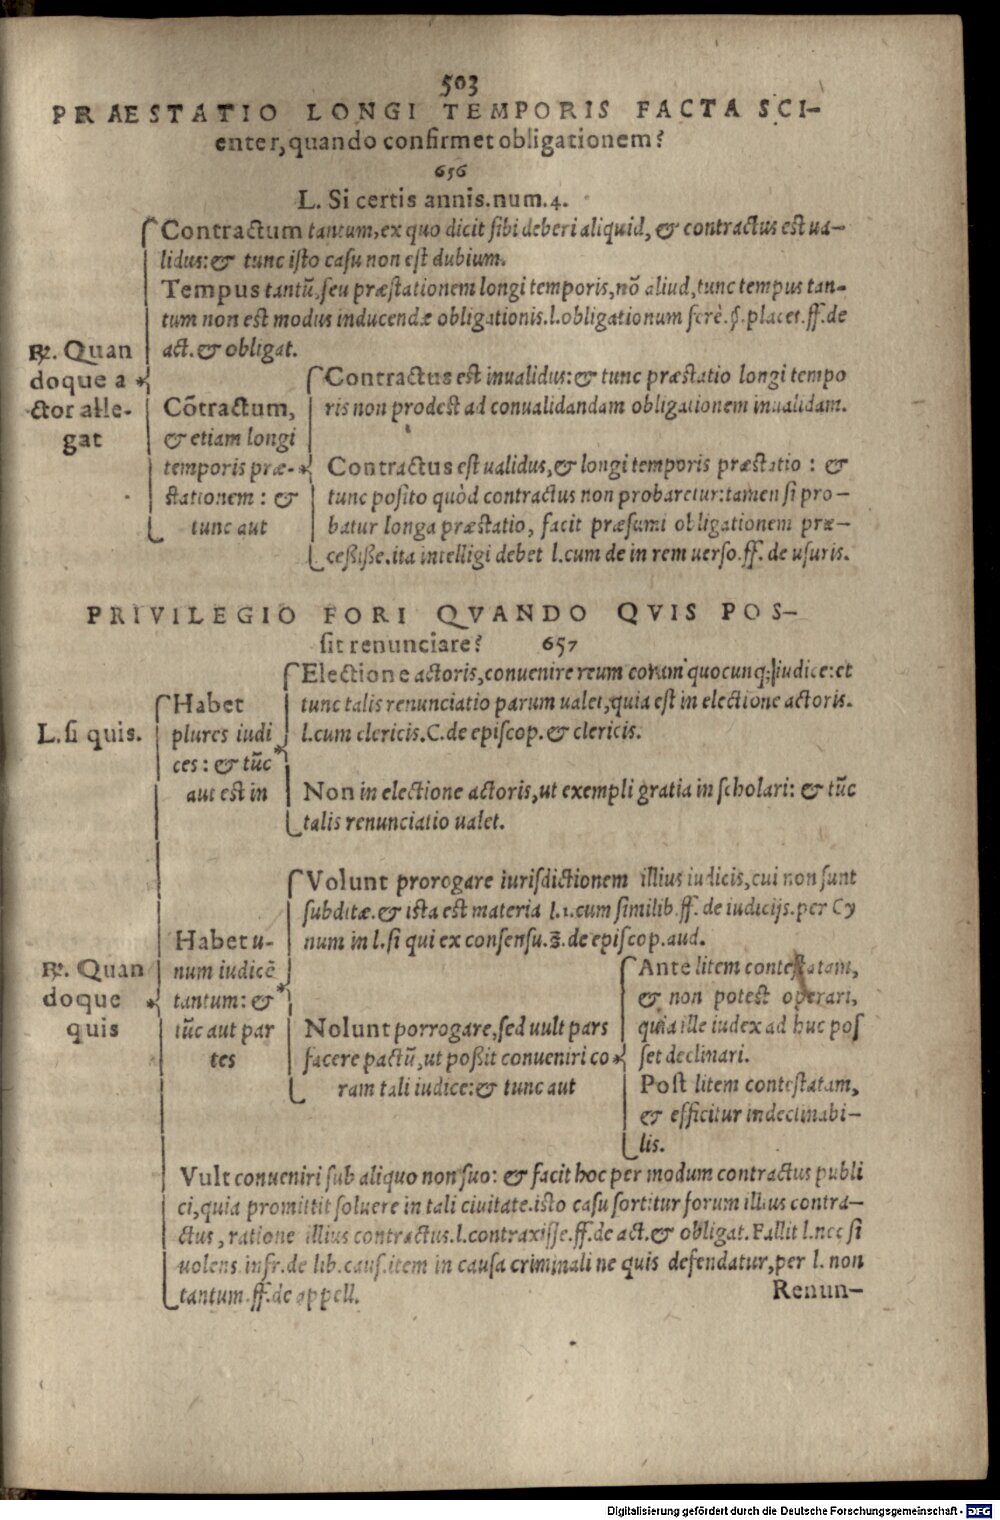 503
PRAESTATIO LONGI TEMPORIS FACTA SCI-
enter, quando confirmet obligationem?
656
L. Si certis annis. num. 4.
℞. Quan
doque a
ctor alle-
gat
Contractum tantum, ex quo dicit sibi deberi aliquid, & contractus est ua-
lidus: & tunc isto casu non est dubium.
Tempus tantũ, seu præstationem longi temporis, nõ aliud, tunc tempus tan-
tum non est modus inducendæ obligationis. l. obligationum ferè. §. placet. ff. de
act. & obligat.
Cõtractum,
& etiam longi
temporis præ-
stationem: &
tunc aut
Contractus est inualidus: & tunc præstatio longi tempo
ris non prodest ad conualidandam obligationem inualidam.
Contractus est ualidus, & longi temporis præstatio: &
tunc posito quòd contractus non probaretur: tamen si pro-
batur longa præstatio, facit præsumi obligationem præ-
cessisse. ita intelligi debet l. cum de in rem uerso. ff. de usuris.
PRIVILEGIO FORI QVANDO QVIS POS-
sit renunciare? 657
L. si quis.
℞. Quan
doque
quis
Habet
plures iudi
ces: & tũc
aut est in
Electione actoris, conuenire reum coram quocunq; iudice: et
tunc talis renunciatio parum ualet, quia est in electione actoris.
l. cum clericis. C. de episcop. & clericis.
Non in electione actoris, ut exempli gratia in scholari: & tũc
talis renunciatio ualet.
Habet u-
num iudicẽ
tantum: &
tũc aut par
tes
Volunt prorogare iurisdictionem illius iudicis, cui non sunt
subditæ. & ista est materia l. 1. cum similib. ff. de iudicijs. per Cy
num in l. si qui ex consensu. de episcop. aud.
Nolunt porrogare, sed uult pars
facere pactũ, ut possit conueniri co
ram tali iudice: & tunc aut
Ante litem contestatam,
& non potest operari,
quia ille iudex ad huc pos
set declinari.
Post litem contestatam,
& efficitur indeclinabi-
lis.
Vult conueniri sub aliquo non suo: & facit hoc per modum contractus publi
ci, quia promittit soluere in tali ciuitate. isto casu sortitur forum illius contra-
ctus, ratione illius contractus. l. contraxisse. ff. de act. & obligat. Fallit l. nec si
uolens. infr. de lib. caus. item in causa criminali ne quis defendatur, per l. non
tantum. ff. de appell.
Renun-
Digitalisierung gefördert durch die Deutsche Forschungsgemeinschaft - DFG